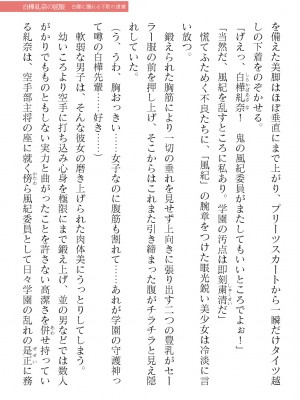 白樺乩奈の屈服 白濁に濡れる不敗の道着
を備えた美脚はほぼ垂直にまで上がり、プリーツスカートから一瞬だけタイツ越
しの下着をのぞかせる。
「げえっ、白樺乩奈！　鬼の風紀委員がまたしてもいいところでよぉ！」
「当然だ、風紀を乱すところに私あり。学園の汚点は即刻粛清だ」
慌てふためく不良たちに、「風紀」の腕章をつけた眼光鋭い美少女は冷淡に言
い放つ。
鍛えられた胸筋により一切の垂れを見せず上向きに張り出す二つの豊乳がセー
ラー服の前を押し上げ、そこからはこれまた引き締まった腹がチラチラと見え隠
れしていた。
（う、うわ、胸おっきい……女子なのに腹筋も割れて……あれが学園の守護神っ
て噂の白樺先輩……好き……）
軟弱な男子は、そんな彼女の磨き上げられた肉体美にうっとりしてしまう。
幼いころより空手に打ち込み心身を極限にまで鍛え上げ、並の男などでは数人
がかりでもものともしない実力と曲がったことを許せない高潔さを併せ持ってい
ることから、空手部主将の座に就く傍ら風紀委員として日々学園の乱れの是正に務